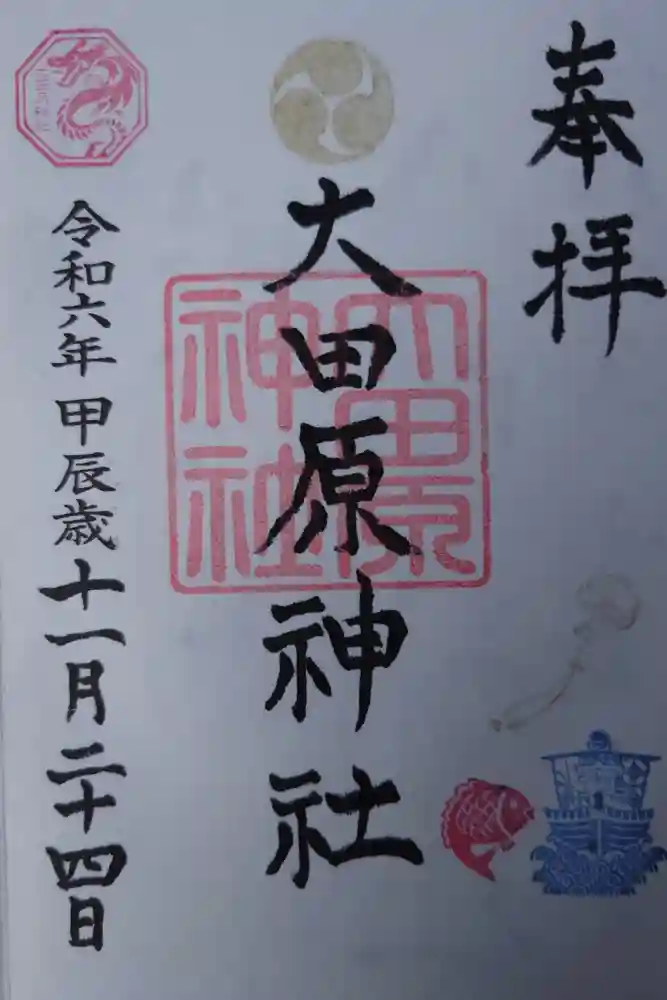 奉拝
大田原神社
大田原神社
令和六年甲辰歳十一月二十四日